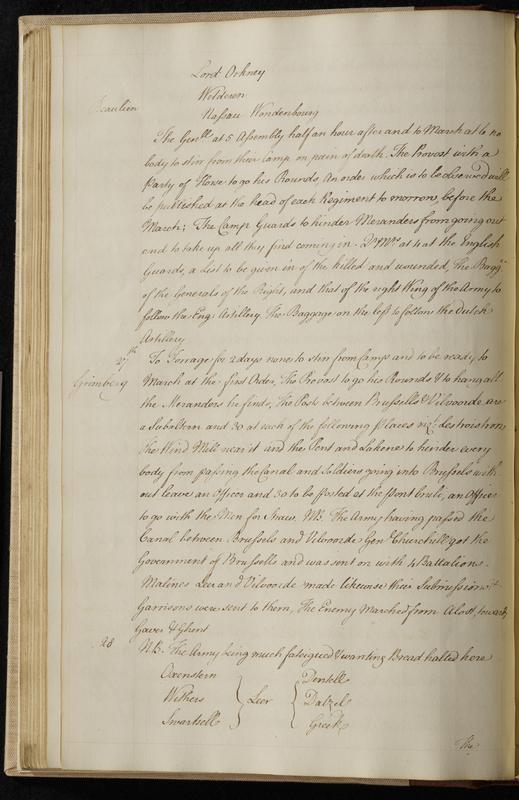 Lord Orkney
Welderen
Beaulieu
Nassau Wondenbourg
The Genll. at 5 Assembly half an hour after and to March at 6 no
body to stirr from their Camp on pain of death. The Provost with a
Party of Horse to go his Rounds, An order which is to be observed will
be published at the head of each Regiment to morrow before the
March; The Camp Guards to hinder Meranders from going out
and to take up all they find coming in. Qr. Mrs. at 4 at the English
Guards, a List to be given in of the killed and wounded, The Bagge
of the Generals of the Right, and that of the right Wing of the Army to
follow the Eng: Artillery The Baggage on the left to follow the Dutch
Artillery
27th
Grimberg
To Forrage for 2 days none to stirr from Camp and to be ready to
March at the first Order, The Provost to go his Rounds & to hang all
the Meranders he finds, The Posts between Brussells & Vilvoorde are
a Subaltern and 30 at each of the following places viz. les trois trou
the Wind Mill near it and the Pont and Lakene to hinder every
body from passing the Canal and Soldiers going into Brussels with
out leave an Officer and 30 to be posted at the Pont brulé, an Officer
to go with the Men for Straw. NB. The Army having passed the
Canal between Brussels and Vilvoorde Genl. Churchill got the
Government of Brussells and was sent on with 4 Battalions.
Malines Leer and Vilvoorde made likewise their Submissions &
Garrisons were sent to them, The Enemy Marched from Alost, towards
Gaver & Ghent
28
NB. The Army being much fateigued & wanting Bread halted here
Oxenstern
Withers
Swartsell
Leer
Dentell
Dalzel
Greek
The